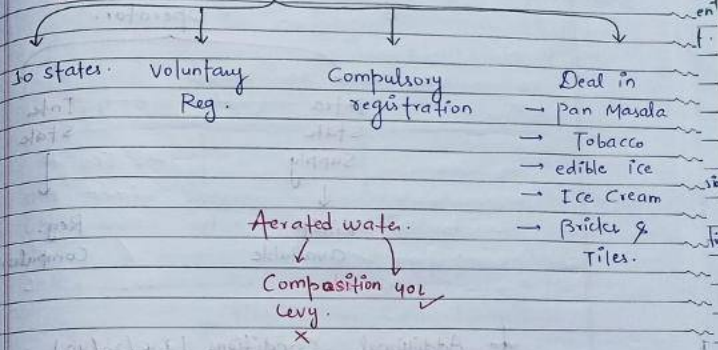 10 states.
Voluntary
Reg.
Compulsory
registration
Deal in
→ Pan Masala
→ Tobacco
→ edible ice
→ Ice Cream
→ Bricks &
Tiles.
Aerated water.
Composition
levy.
×
40L ✓